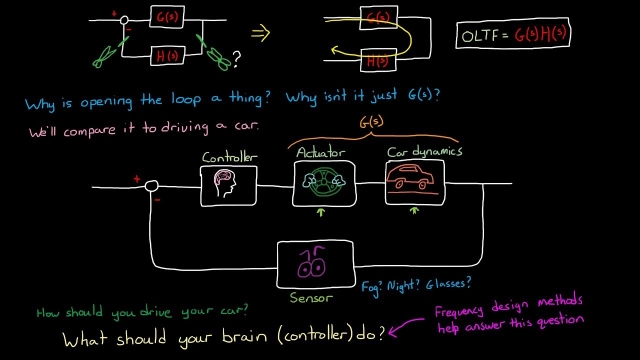 + G(s)
-
H(s)
?
⇒
G(s)
H(s)
OLTF = G(s)H(s)
Why is opening the loop a thing? Why isn't it just G(s)?
We'll compare it to driving a car.
G(s)
Controller Actuator Car dynamics
+
-
Sensor
Fog? Night? Glasses?
How should you drive your car?
What should your brain (controller) do?
Frequency design methods
help answer this question